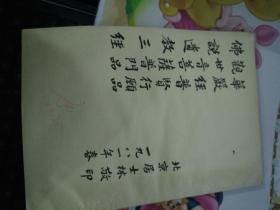 佛說遺教三經
觀世音菩薩普門品
華嚴經普賢行願品
北京居士林敬印
一九八一年春